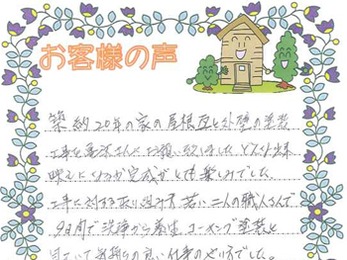 お客様の声
築約20年の家の屋根瓦と外壁の塗装
工事を さんにお願い致しました どんな出来
映えになるか完成がとても楽しみでした。
工事に対する取り組み方 若い二人の職人さんで
9日間で洗浄から養生 コーキング塗装と
気持の良い仕事のやり方でした。